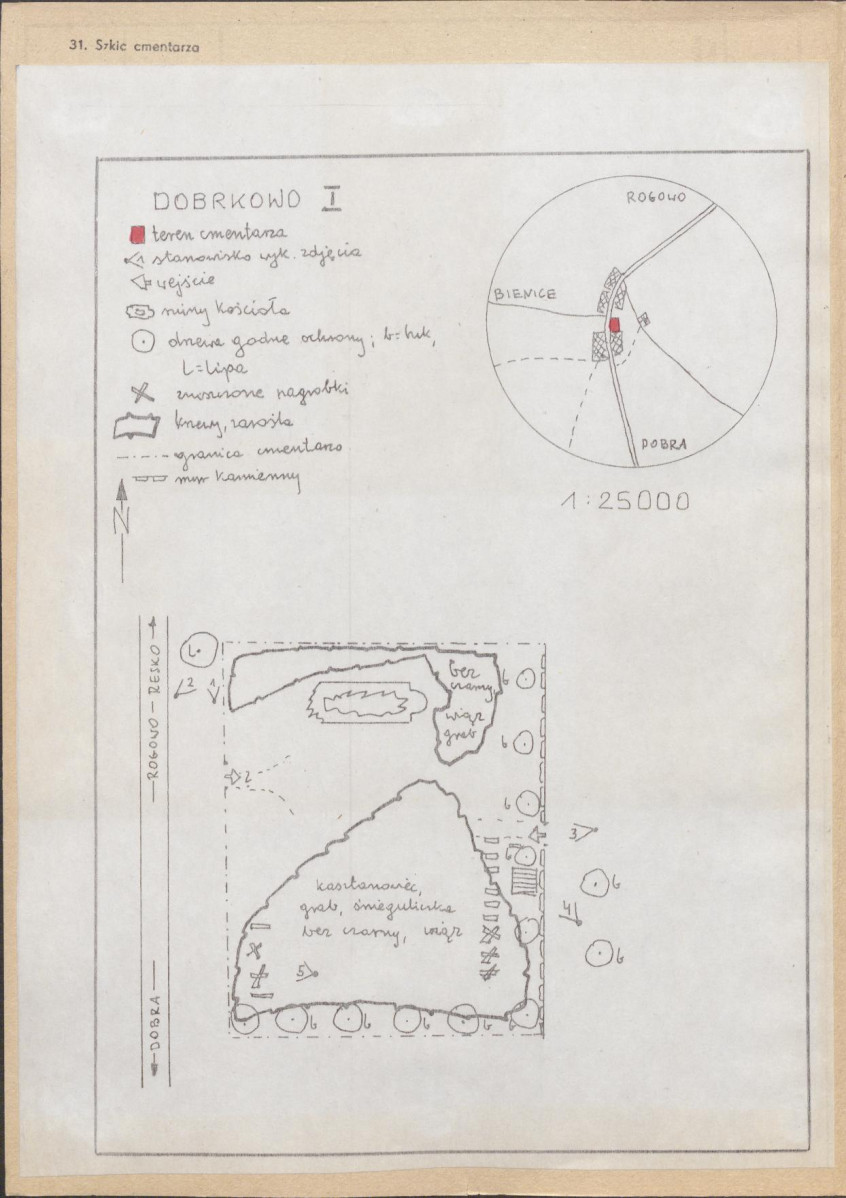 31. Szkic cmentarza
DOBRKOWO I
teren cmentarza
1 stanowisko wyk. zdjęcia
wejście
ruiny kościoła
drzewa godne ochrony; b=buk,
L=lipa
zniszczone nagrobki
krzewy, zarośla
granica cmentarza
mur kamienny
N
ROGOWO
BIENICE
DOBRA
1:25000
ROGOWO – RESKO
DOBRA
L
2
1
bez
czarny,
wiąz
grab
b
b
b
2
3
b
kasztanowiec,
grab, śnieguliczka
bez czarny, wiąz
b
4
b
5
b
b
b
b
b